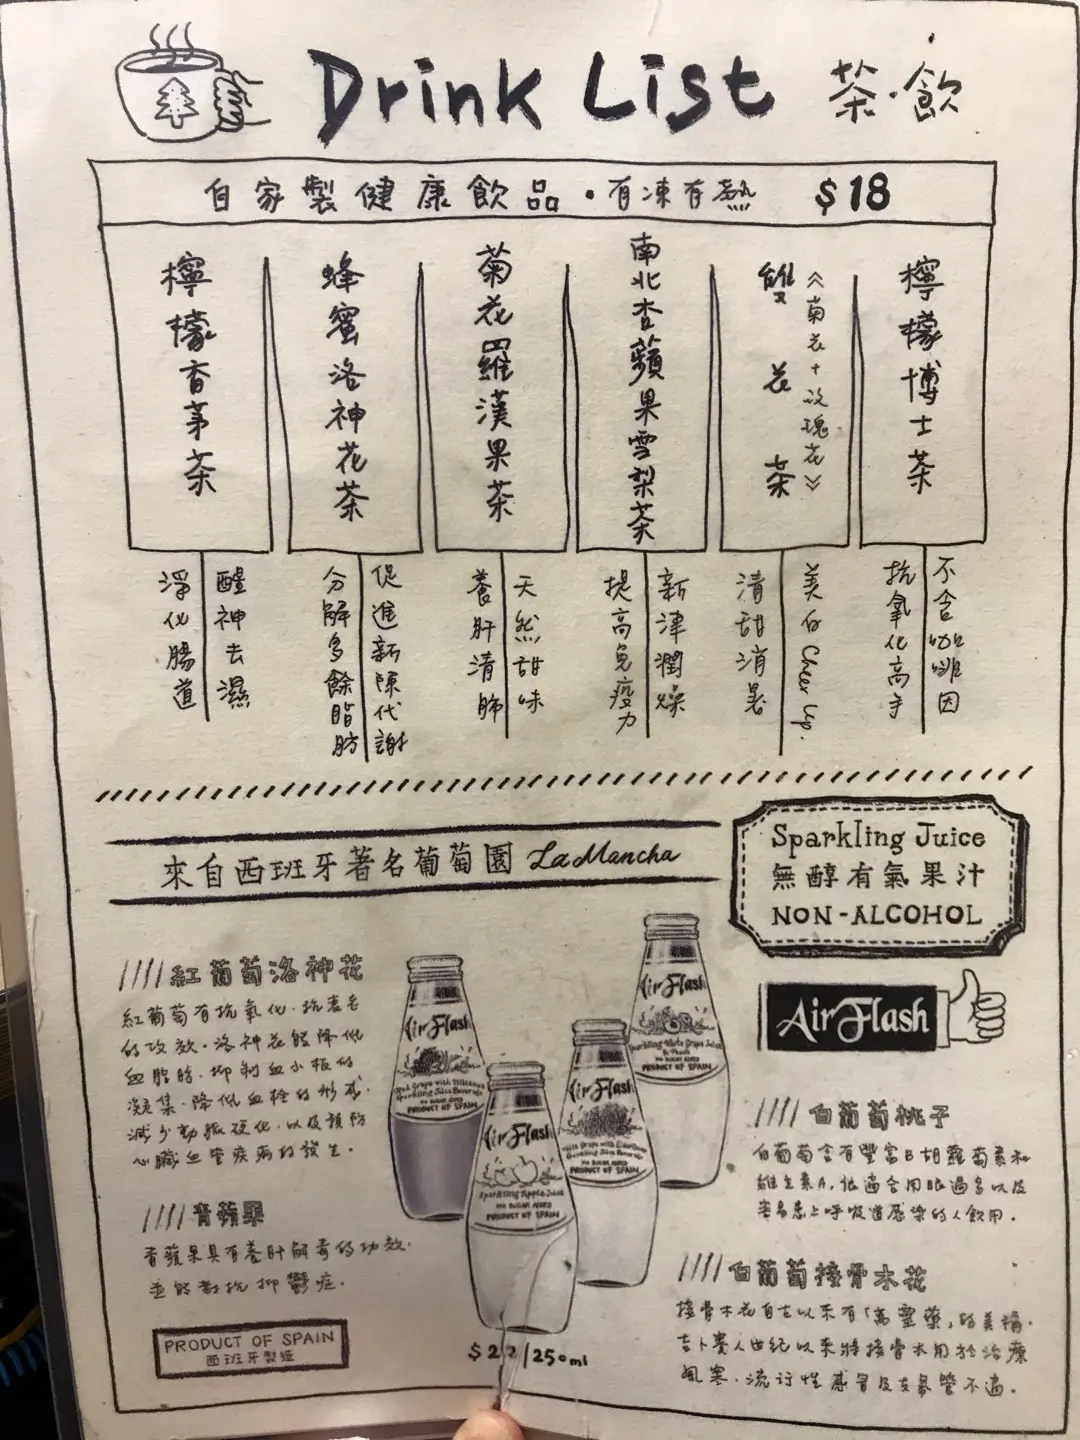 Drink List 茶·飲
自家製健康飲品·有凍有熱 $18
檸檬香茅茶
醒神去濕
淨化腸道
蜂蜜洛神花茶
促進新陳代謝
分解多餘脂肪
菊花羅漢果茶
天然甜味
養肝清肺
南北杏蘋果雪梨茶
新津潤燥
提高免疫力
雙花茶
《菊花+玫瑰花》
美白 Cheer Up.
清甜消暑
檸檬博士茶
不含咖啡因
抗氧化高手
來自西班牙著名葡萄園 La Mancha
Sparkling Juice
無醇有氣果汁
NON-ALCOHOL
AirFlash
紅葡萄洛神花
紅葡萄有抗氧化·抗衰老
的功效·洛神花能降低
血脂肪·抑制血小板的
凝集·降低血栓的形成·
減少動脈硬化·以及預防
心臟血管疾病的發生。
青蘋果
青蘋果具有養肝解毒的功效·
並能對抗抑鬱症。
PRODUCT OF SPAIN
西班牙製造
AirFlash
Red Grape with Hibiscus
Sparkling Juice Beverage
NO SUGAR ADDED
PRODUCT OF SPAIN
AirFlash
Sparkling Apple Juice
NO SUGAR ADDED
PRODUCT OF SPAIN
AirFlash
White Grape with Elderflower
Sparkling Juice Beverage
NO SUGAR ADDED
PRODUCT OF SPAIN
AirFlash
Sparkling White Grape Juice
& Peach
NO SUGAR ADDED
PRODUCT OF SPAIN
$22/250ml
白葡萄桃子
白葡萄含有豐富B胡蘿蔔素和
維生素A, 很適合用眼過多以及
容易患上呼吸道感染的人飲用。
白葡萄接骨木花
接骨木花自古以來有「萬靈藥」的美稱·
吉卜賽人世紀以來將接骨木用於治療
風寒·流行性感冒及支氣管不適。